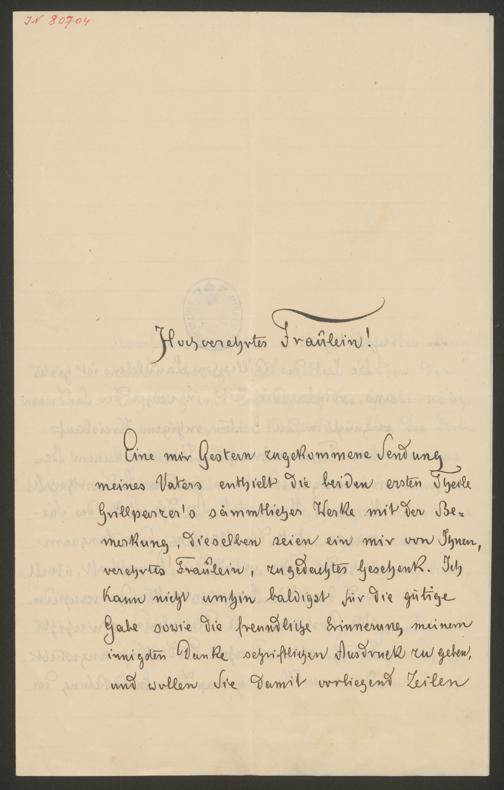 JN 80704
Hochverehrtes Fräulein!
Eine mir Gestern zugekommene Sendung
meines Vaters enthielt die beiden ersten Theile
Grillparzer's sämmtlicher Werke mit der Be-
merkung, dieselben seien ein mir von Ihnen,
verehrtes Fräulein, zugedachtes Geschenk. Ich
kann nicht umhin baldigst für die gütige
Gabe sowie die freundliche Erinnerung meinem
innigsten Danke schriftlichen Ausdruck zu geben,
und wollen Sie damit vorliegend Zeilen